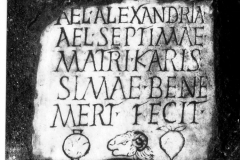 AEL·ALEXANDRIA
AEL·SEPTIMAE
MATRI·KARIS
SIMAE·BENE
MERT·FECIT·